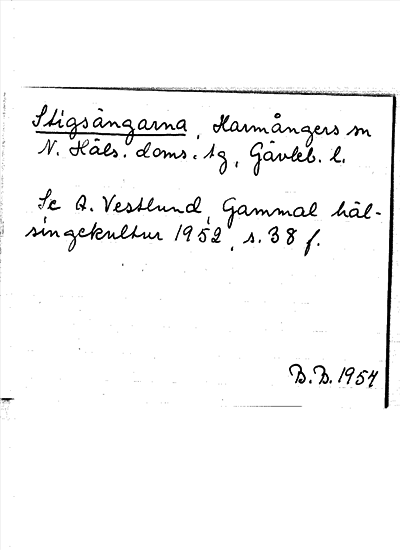 Stigsångarna, Harmångers sn
N. Häls. doms. tg, Gävleb. l.
Se A. Vestlund, Gammal häl-
singekultur 1952, s. 38 f.
B.B. 1957